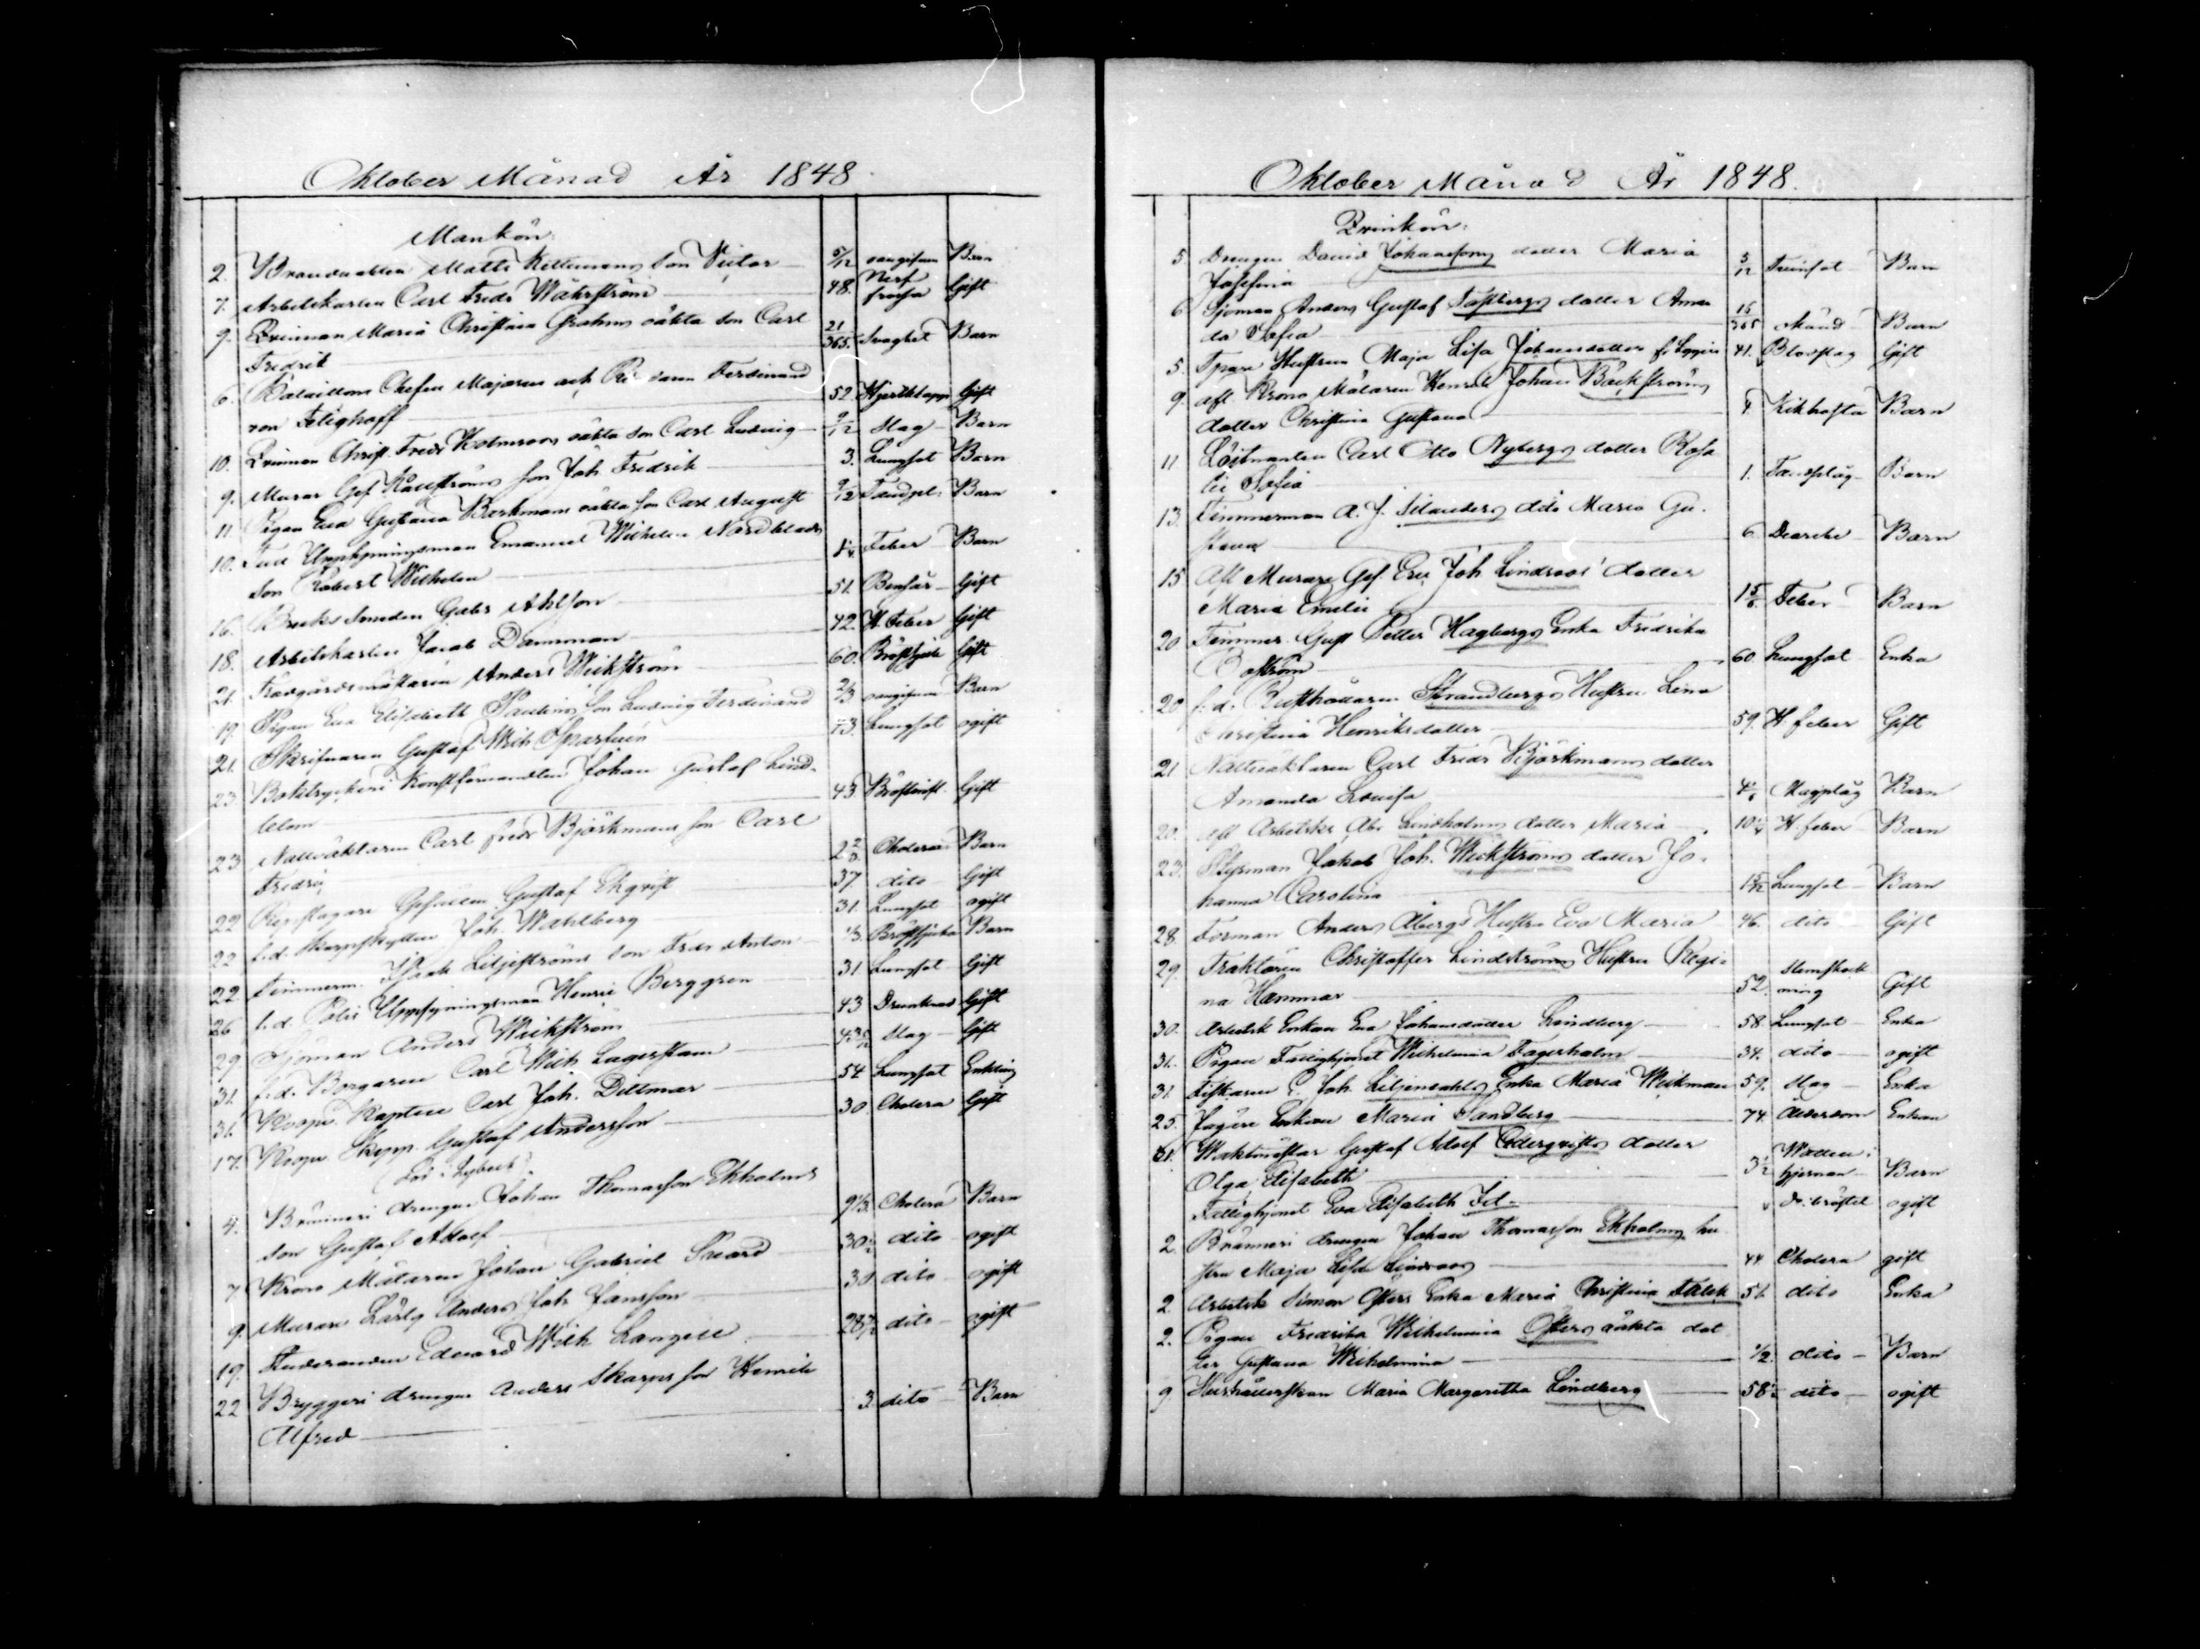 Oktober Månad År 1848.
Mankön:
2. Brandvakten Matts Kellmans son Victor 5/12 oangifven Barn
7. Arbetskarlen Carl Fredr Wahrström 48. Nerf frossa Gift
9. Qvinnan Maria Christina Grahns oäkta son Carl 21/365 Svaghet Barn
Fredrik
6. Bataillons Chefen Majoren och Riddaren Ferdinand 52 Hjertklapp Gift
von
10. Qvinnan Christ. Fredr Holmroos oäkta son Carl Ludvig 9/12 Slag Barn
9. Murar Ges. son Joh Fredrik 3. Lungsot Barn
11 Pigan Eva Gustava Berkmans oäkta son Carl August 9/12 Tandpl. Barn
10. Emanuel Wilhelm Nordblads
son Robert Wilhelm Feber Barn
16. Bruks Smeden Gabr Ahlson 51. Bensår Gift
18. Arbetskarlen Jacob Damman 42. N. Feber Gift
21. Trädgårdsmästaren Anders Wickström 60. Bröstsjuk Gift
19. Pigan Eva Elisabeth Paulins son Ludvig Ferdinand 2/3 oangifven Barn
21. Skrifvaren Gustaf Wilh 73. Lungsot ogift
23. Boktryckeri Konstförvandten Johan Gustaf Lind-
blom 43 Gift
23 Nattväktaren Carl Fredr Björkmans son Carl
Fredrik Cholera Barn
22 Repslagare Gesällen Gustaf Ekqvist 37 dito Gift
22 f.d. Skarpskytten Joh. Wahlberg 31. Lungsot ogift
22 Timmerm. Isaak Liljeströms son Fredr Anton 1/3. Bröstsjuka Barn
26 f.d. Polis Uppsyningsman Henric Berggren 31 Lungsot Gift
29 Sjöman Anders Wickström 43 Drunknad Gift
31. f.d. Borgaren Carl Wilh Lagerstam Slag Gift
31. Koopv. Kapten Carl Joh. Dittmar 54 Lungsot Enkling
17. Koopv. Skepp. Gustaf Andersson 30 Cholera Gift
(Dö i Lybeck).
4. Bränneri drengen Johan Thomasson Ekholms
son Gustaf Adolf 9 1/3. Cholera Barn
7 Krono Mätaren Johan Gabriel 30 1/2 dito ogift
9 Murare Lärlg Anders Joh Jansson 30 dito ogift
19. Studeranden Edvard Wilh 28 dito ogift
22 Bryggeri drengen Anders Skarps son Henrik
Alfred 3. dito Barn
Oktober Månad År 1848.
Qvinkön:
5 Drengen David Johanssons dotter Maria
Josefina 3/12 Barn
6. Sjöman Anders Gustaf dotter Aman-
da Sofia 15/365 Barn
5. Hustrun Maja Lisa Johansdotter 41. Blodslag Gift
9. afl Krono Mätaren Henrik Johan Bäckströms
dotter Christina Gustava 4. Kikhosta Barn
11 Löitnanten Carl Otto Nybergs dotter Rosa
lie Sofia 1. Tandplåg Barn
13. Timmerman A. J. Silanders dito Maria Gu-
stava 6. Diarrhe Barn
15 Afl Murare Ges. Eric Joh Lindroos' dotter
Maria Emelie Feber Barn
20 Timmer. Gust Petter Hagbergs Enka Fredrika
Boström 60 Lungsot Enka
20. f.d. Rusthållaren Strandbergs Hustru Lena
Christina Henriksdotter 59. N feber Gift
21 Nattväktaren Carl Fredr Björkmans dotter
Amanda Lovisa Magplåg Barn
20. Afl Arbetsk Abr Lindholms dotter Maria 10 N feber Barn
23. Styrman Jakob Joh. Wickströms dotter Jo-
hanna Carolina Lungsot Barn
28. Forman Anders Åbergs Hustru Eva Maria 46. dito Gift
29. Traktören Christoffer Lindströms Hustru Regi-
na Hammar 52. Gift
30. Arbetsk Enkan Eva Johansdotter Lindberg 58. Lungsot Enka
31. Pigan Fattighjonet Wilhelmina Fagerholm 34. dito ogift
31. Fiskaren C. Joh. Liljendahls Enka Maria Wickman 59. Slag Enka
25. Jägare Enkan Maria Sandberg 74. Ålderdom Enkan
31. Waktmästar Gustaf Adolf Cederqvists dotter
Olga Elisabeth 3 1/2 Watten i hjernan Barn
Fattighjonet Eva Elisabeth ogift
2. Bränneri drengen Johan Thomasson Ekholms hu-
stru Maja Lisa Lindroos 44 Cholera gift
2. Arbetsk Simon Öfters Enka Maria Christina Falck 51. dito Enka
2. Pigan Fredrika Wilhelmina Öfters oäkta dot
ter Gustava Wilhelmina 1/2. dito Barn
9. Hushållerskan Maria Margaretha Lindberg 58 dito ogift